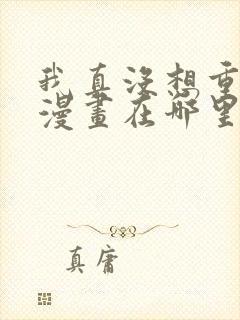 我真没想重
漫畫在哪里
真庸